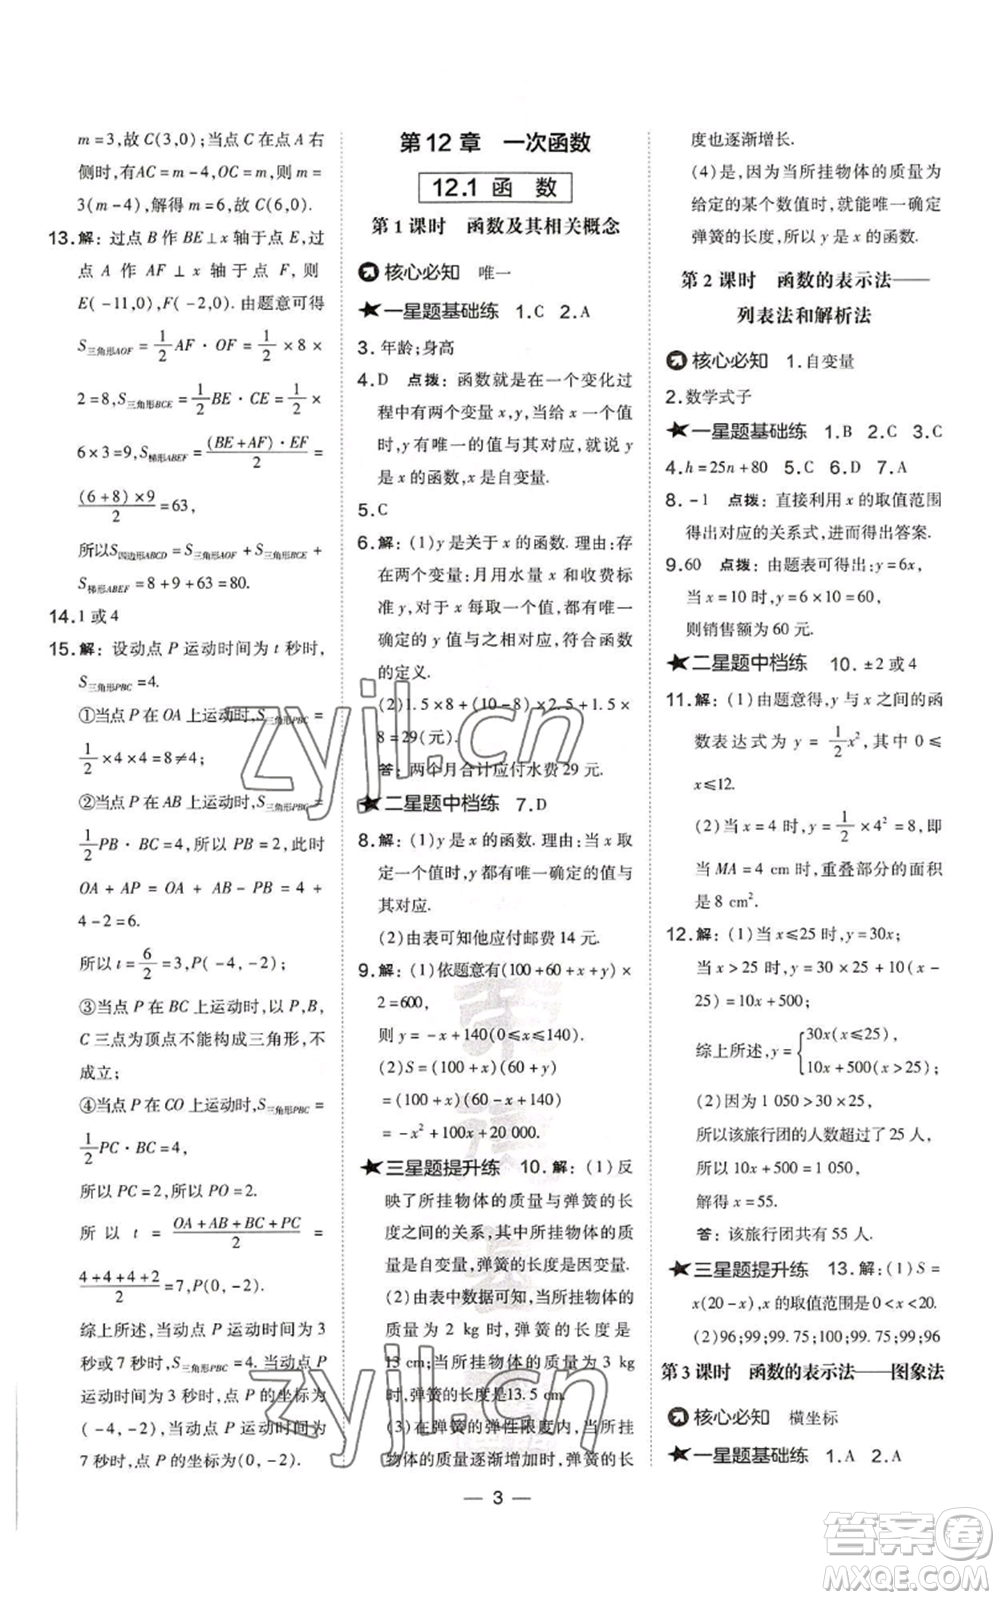 m=3,故 C(3,0);当点 C 在点 A 右
侧时,有AC=m-4,BC=m,m=
3(m-4),解得 m=6,故 C(6,0).
13.解:过点 B 作 BE⊥x 轴于点 E,过
点 A 作 AF⊥x 轴于点 F,则
E(-11,0),F(-2,0).由题意可得
S三角形AOF=1/2 AF·OF=1/2×8×
2=8,S三角形BCE=1/2 BE·CE=1/2×
6×3=9,S梯形ABEF=(BE+AF)·EF/2=
(6+8)×9/2=63,
所以S四边形ABCD=S三角形AOF+S三角形BCE+
S梯形ABEF=8+9+63=80.
14.1 或 4
15.解:设动点 P 运动时间为 t 秒时,
S三角形PBC=4.
①当点 P 在 OA 上运动时,S三角形PBC=
1/2×4×4=8≠4;
②当点 P 在 AB 上运动时,S三角形PBC=
1/2 PB·BC=4,所以 PB=2,所以
OA+AP=OA+AB-PB=4+
4-2=6.
所以 t=6/2=3,P(-4,-2);
③当点 P 在 BC 上运动时,以 P,B,
C 三点为顶点不能构成三角形,不
成立;
④当点 P 在 CO 上运动时,S三角形PBC=
1/2 PC·BC=4,
所以 PC=2,所以 PO=2.
所以 t=(OA+AB+BC+PC)/2=
(4+4+4+2)/2=7,P(0,-2).
综上所述,当动点 P 运动时间为 3
秒或7秒时,S三角形PBC=4.当动点 P
运动时间为 3 秒时,点 P 的坐标为
(-4,-2);当动点 P 运动时间为
7 秒时,点 P 的坐标为(0,-2).
第 12 章 一次函数
12.1 函 数
第 1 课时 函数及其相关概念
核心必知 唯一
一星题基础练 1.C 2.A
3.年龄;身高
4.D 点拨:函数就是在一个变化过
程中有两个变量 x,y,当给 x 一个值
时,y 有唯一的值与其对应,就说 y
是 x 的函数,x 是自变量.
5.C
6.解:(1)y 是关于 x 的函数.理由:存
在两个变量:月用水量 x 和收费标
准 y,对于 x 每取一个值,都有唯一
确定的 y 值与之对应,符合函数
的定义.
(2)1.5×8+(10-8)×2.5+1.5×
8=29(元).
答:两个月合计应付水费 29 元.
二星题中档练 7.D
8.解:(1)y 是 x 的函数.理由:当 x 取
定一个值时,y 都有唯一确定的值与
其对应.
(2)由表可知他应付邮费 14 元.
9.解:(1)依题意有(100+60+x+y)×
2=600,
则 y=-x+140(0≤x≤140).
(2)S=(100+x)(60+y)
=(100+x)(-x+200)
=-x²+100x+20 000.
三星题提升练 10.解:(1)反
映了所挂物体的质量与弹簧的长
度之间的关系,其中所挂物体的质
量是自变量,弹簧的长度是因变量.
(2)由表中数据可知,当所挂物体的
质量为 2 kg 时,弹簧的长度是
13 cm;当所挂物体的质量为 3 kg
时,弹簧的长度是13.5 cm.
(3)在弹簧的弹性限度内,当所挂
物体的质量逐渐增加时,弹簧的长
度也逐渐增长.
(4)是,因为当所挂物体的质量为
给定的某个数值时,就有唯一确定
弹簧的长度,所以 y 是 x 的函数.
第 2 课时 函数的表示法——
列表法和解析法
核心必知 1.自变量
2.数学式子
一星题基础练 1.B 2.C 3.C
4.h=25n+80 5.C 6.D 7.A
8.-1 点拨:直接利用 x 的取值范围
得出对应的关系式,进而得出答案.
9.60 点拨:由题表可得出:y=6x,
当 x=10 时,y=6×10=60,
则销售额为 60 元.
二星题中档练 10.±2 或 4
11.解:(1)由题意得,y 与 x 之间的函
数表达式为 y=1/2 x²,其中 0≤
x≤12.
(2)当 x=4 时,y=1/2×4²=8,即
当 MA=4 cm 时,重叠部分的面积
是 8 cm².
12.解:(1)当 x≤25 时,y=30x;
当 x>25 时,y=25×30+10(x-
25)=10x+500;
综上所述,y={30x(x≤25),
10x+500(x>25);
(2)因为 1 050>25×30,
所以该旅行团的人数超过了 25 人,
所以 10x+500=1 050,
解得 x=55.
答:该旅行团共有 55 人.
三星题提升练 13.解:(1)S=
x(20-x),x 的取值范围是 0<x<20.
(2)96;99;99.75;100;99;96
第 3 课时 函数的表示法——图象法
核心必知 横坐标
一星题基础练 1.A 2.A
— 3 —
zyjl.cn
zyjl.cn
答案圈
MXQE.COM